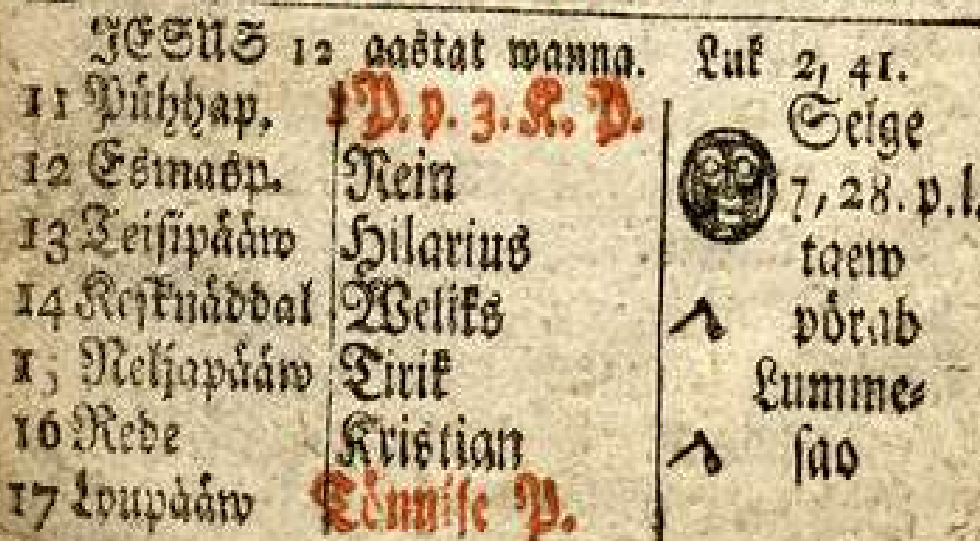 JESUS 12 aastat wanna. Luk 2, 41.
11 Pühhap. 1 P. p. 3. K. P. Selge
12 Esmasp. Nein 7, 28. p. l.
13 Teisipääw Hilarius taew
14 Kesknäddal Weliks pörab
15 Neljapääw Tirik Lumme⸗
16 Rede Kristian sao
17 Loupääw Tönnise P.